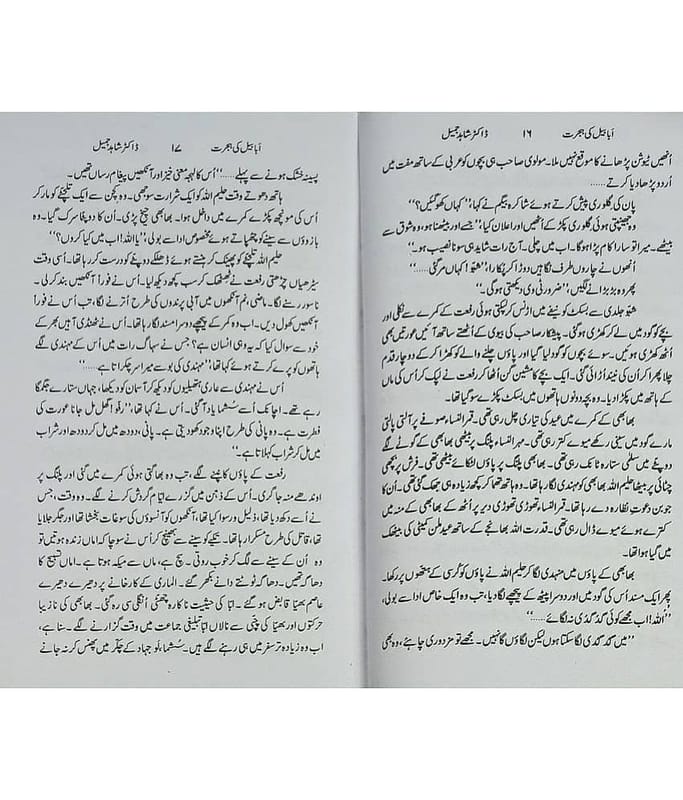 ابابیل کی ہجرت ۱۶ ڈاکٹر شاہد جمیل
اُنھیں ٹیوشن پڑھانے کا موقع نہیں ملا۔ مولوی صاحب ہی بچوں کو عربی کے ساتھ مفت میں
اُردو پڑھا دیا کرتے ......
پان کی گلوری پیش کرتے ہوئے شاکرہ بیگم نے کہا، ’’کہاں کھو گئیں؟‘‘
وہ جھینپتی ہوئی گلوری پکڑ کے اُٹھیں اور اعلان کیا، ’’جسے اور بیٹھنا ہو، وہ شوق سے
بیٹھے۔ میرا تو سارا کام پڑا ہوگا۔ اب میں چلی۔ آج رات شاید ہی سونا نصیب ہو۔‘‘
اُنھوں نے چاروں طرف نگاہیں دوڑا کر پکارا، ’’شبّو! کہاں مر گئی......‘‘
پھر وہ بڑبڑانے لگیں، ’’ضرور ٹی وی دیکھتی ہوگی۔‘‘
شبّو جلدی سے بسکٹ کو نیفے میں اڑنس کر لپکتی ہوئی رفعت کے کمرے سے نکلی اور
بچے کو گود میں لے کر کھڑی ہوگئی۔ پیشکار صاحب کی بیوی کے اُٹھتے ساتھ آئیں عورتیں بھی
اُٹھ کھڑی ہوئیں۔ سوئے بچوں کو گود لیا گیا اور پاؤں چلنے والے کو کھڑا کر کے دو چار قدم
چلا پھرا کر اُن کی نیند اُڑائی گئی۔ ایک بچے کا مشین گن اُٹھا کر رفعت نے لپک کر اُس کی ماں
کے ہاتھ میں پکڑا دیا۔ وہ بچہ دونوں ہاتھوں میں بسکٹ پکڑے سو گیا تھا۔
بھابھی کے کمرے میں عید کی تیاری چل رہی تھی۔ قمر النساء صوفے پر آلتی پالتی
مارے گود میں سینی رکھے میوے کتر رہی تھی۔ مہر النساء پلنگ پر بیٹھی بھابھی کے گوٹے لگے
دوپٹے میں سلمٰی ستارہ ٹانک رہی تھی۔ بھابھی پلنگ پر پاؤں لٹکائے بیٹھی تھی۔ فرش پر بچھی
چٹائی پر بیٹھا حلیم اللہ بھابھی کو مہندی لگا رہا تھا۔ وہ ہاتھ تھما کر کچھ زیادہ ہی جھک گئی تھی۔ اُن کا
جوبن دعوتِ نظارہ دے رہا تھا۔ قمر النساء تھوڑی تھوڑی دیر پر اُٹھ کے بھابھی کے منہ میں
کترے ہوئے میوے ڈال رہی تھی۔ قدرت اللہ بھانجے کے ساتھ عید ملن کمیٹی کی بیٹھک
میں گیا ہوا تھا۔
بھابھی کے پاؤں میں مہندی لگا کر حلیم اللہ نے پاؤں کو کرسی کے ہتھوں پر رکھا۔
پھر ایک مسند اُس کی گود میں اور دوسرا پیٹھ کے پیچھے لگا دیا، تب وہ ایک خاص ادا سے بولی،
’’اللہ! اب مجھے کوئی گدگدی نہ لگائے......‘‘
’’میں گدگدی لگا سکتا ہوں لیکن لگاؤں گا نہیں۔ مجھے تو مزدوری چاہئے، وہ بھی
ابابیل کی ہجرت ۱۷ ڈاکٹر شاہد جمیل
پسینہ خشک ہونے سے پہلے......‘‘ اُس کا لہجہ معنی خیز اور آنکھیں پیغام رساں تھیں۔
ہاتھ دھوتے وقت حلیم اللہ کو ایک شرارت سوجھی۔ وہ کچن سے ایک تلچٹے کو مار کر
اُس کی مونچھ پکڑے کمرے میں داخل ہوا۔ بھابھی چیخ پڑی۔ اُن کا دوپٹا سرک گیا۔ وہ
بازوؤں سے سینے کو چھپاتے ہوئے مخصوص ادا سے بولی، ’’یا اللہ! اب میں کیا کروں؟‘‘
حلیم اللہ تلچٹے کو پھینک کر ہنستے ہوئے ڈھلکے دوپٹے کو درست کر رہا تھا۔ اُسی وقت
سیڑھیاں چڑھتی رفعت نے ٹھٹھک کر سب کچھ دیکھ لیا۔ اُس نے فوراً آنکھیں بند کر لی۔
ناسور رسنے لگا۔ ماضی نم آنکھوں میں آبی پرندوں کی طرح اُترنے لگا، تب اُس نے فوراً
آنکھیں کھول دیں۔ اب وہ کمر کے پیچھے دوسرا مسند لگا رہا تھا۔ اُس نے ٹھنڈی آہیں بھر کے
خود سے سوال کیا کہ یہ وہی انسان ہے؟ جس نے سہاگ رات میں اُس کے مہندی لگے
ہاتھوں کو پرے کرتے ہوئے کہا تھا، ’’مہندی کی بو سے میرا سر چکراتا ہے......‘‘
اُس نے مہندی سے عاری ہتھیلیوں کو دیکھ کر آسمان کو دیکھا، جہاں ستارے جگمگا
رہے تھے۔ اچانک اُسے سُشما یاد آگئی۔ اُس نے کہا تھا، ’’رفّو! گھل مل جانا عورت کی
فطرت ہے۔ وہ پانی کی طرح اپنا وجود کھو دیتی ہے۔ پانی، دودھ میں مل کر دودھ اور شراب
میں مل کر شراب کہلاتا ہے۔‘‘
رفعت کے پاؤں کانپنے لگے، تب وہ بھاگتی ہوئی کمرے میں گئی اور پلنگ پر
اوندھے منہ جا گری۔ اُس کے ذہن میں گزرے ایّام گردش کرنے لگے۔ وہ وقت، جس
نے اُسے دکھ دیا تھا، ذلیل و رسوا کیا تھا، آنکھوں کو آنسوؤں کی سوغات بخشا تھا اور جگر جلایا
تھا، قاتل کی طرح مسکرا رہا تھا۔ تکیے کو سینے سے بھینچ کر اُس نے سوچا کہ اماں زندہ ہوتیں تو
وہ اُن کے سینے سے لگ کر خوب روتی۔ سچ ہے، ماں سے میکہ ہوتا ہے۔ اماں تسبیح کا
دھاگہ تھیں۔ دھاگہ ٹوٹتے دانے بکھر گئے۔ الماری کے کارخانے پر دھیرے دھیرے
عاصم بھیّا قابض ہوگئے۔ ابّا کی حیثیت ناکارہ چھٹی اُنگلی سی رہ گئی۔ بھابھی کی نازیبا
حرکتوں اور بھیّا کی چپّی سے نالاں ابّا تبلیغی جماعت میں وقت گزارنے لگے۔ سنا ہے،
اب وہ زیادہ تر سفر میں ہی رہنے لگے ہیں۔ سُشما، لَو جہاد کے چکّر میں پھنس کر نہ جانے